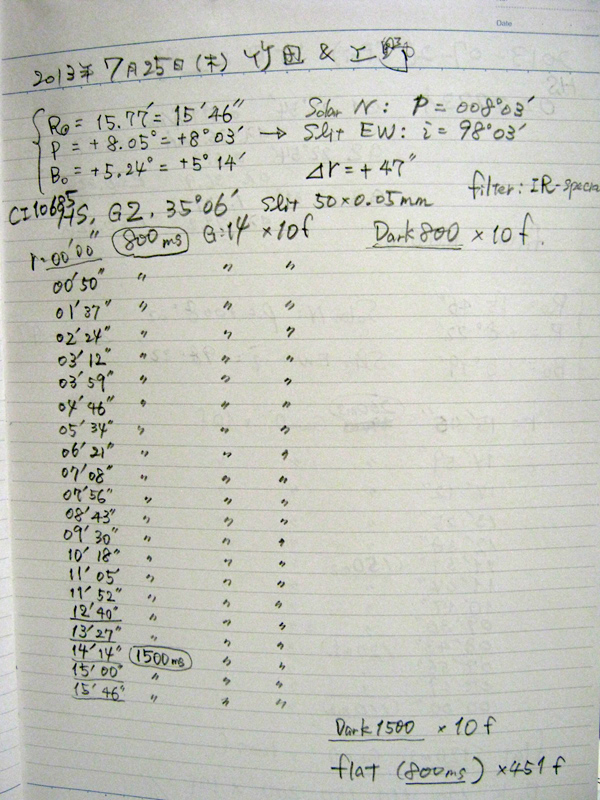 Date
2013年 7月25日(木) 竹田 & 上野
R₀ = 15.77' = 15'46"
P = +8.05° = +8°03'
B₀ = +5.24° = +5°14'
Solar N: P = 008°03'
→ Slit EW: i = 98°03'
Δr = +47"
filter: IR-specra
CI10685
HS, G2, 35°06' Slit 50×0.05mm
r=00'00" 800ms G:14 ×10f Dark800 ×10f.
00'50" " " "
01'37" " " "
02'24" " " "
03'12" " " "
03'59" " " "
04'46" " " "
05'34" " " "
06'21" " " "
07'08" " " "
07'56" " " "
08'43" " " "
09'30" " " "
10'18" " " "
11'05' " " "
11'52" " " "
12'40" " " "
13'27" " " "
14'14" 1500ms " "
15'00" " " "
15'46" " " "
Dark1500 ×10f
flat (800ms) ×451f